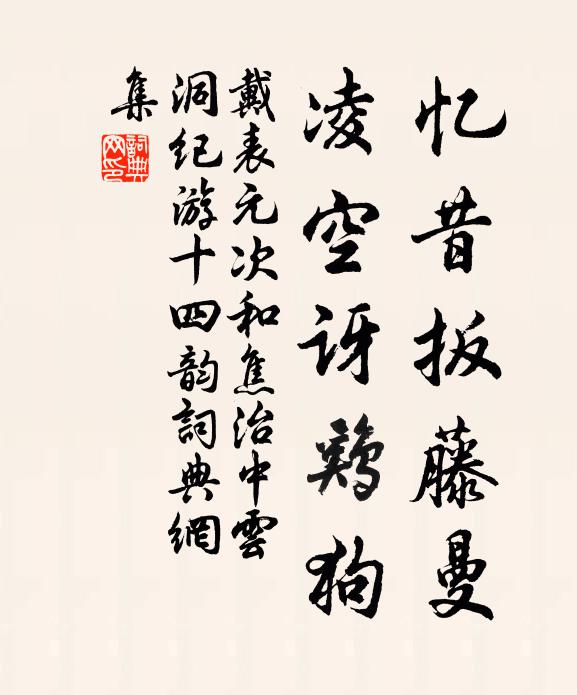 忆昔扳藤蔓
凌空讶鷄狗
戴表元次和焦治中雲
洞纪游十四韵詞典網
集
詞典
网印